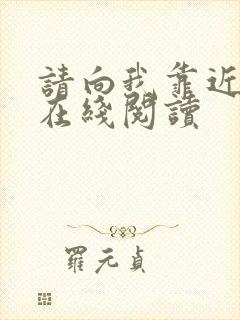 請向我靠近
在綫閱讀
羅元貞